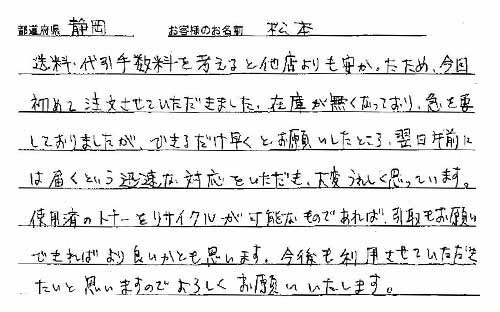 都道府県 静岡 お客様のお名前 松本
送料・代引手数料を考えると他店よりも安かったため、今回
初めて注文させていただきました。在庫が無くなっており、急を要
しておりましたが、できるだけ早くとお願いしたところ、翌日午前に
は届くという迅速な対応をいただき、大変うれしく思っています。
使用済のトナーをリサイクルが可能なものであれば、引取もお願い
できればより良いかとも思います。今後も利用させていただき
たいと思いますのでよろしくお願いいたします。